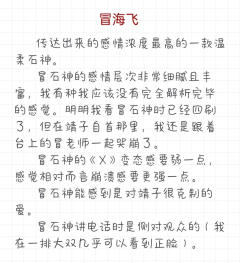 冒海飞
传达出来的感情浓度最高的一款温
柔石神。
冒石神的感情层次非常细腻且丰
富，我有种我应该没有完全解析完毕
的感觉。明明我看冒石神时已经四刷
了，但在靖子自首那里，我还是跟着
台上的冒老师一起哭崩了。
冒石神的《X》变态感要弱一点，
感觉相对而言崩溃感要更强一点。
冒石神能感到是对靖子很克制的
爱。
冒石神讲电话时是侧对观众的（我
在一排大双几乎可以看到正脸）。